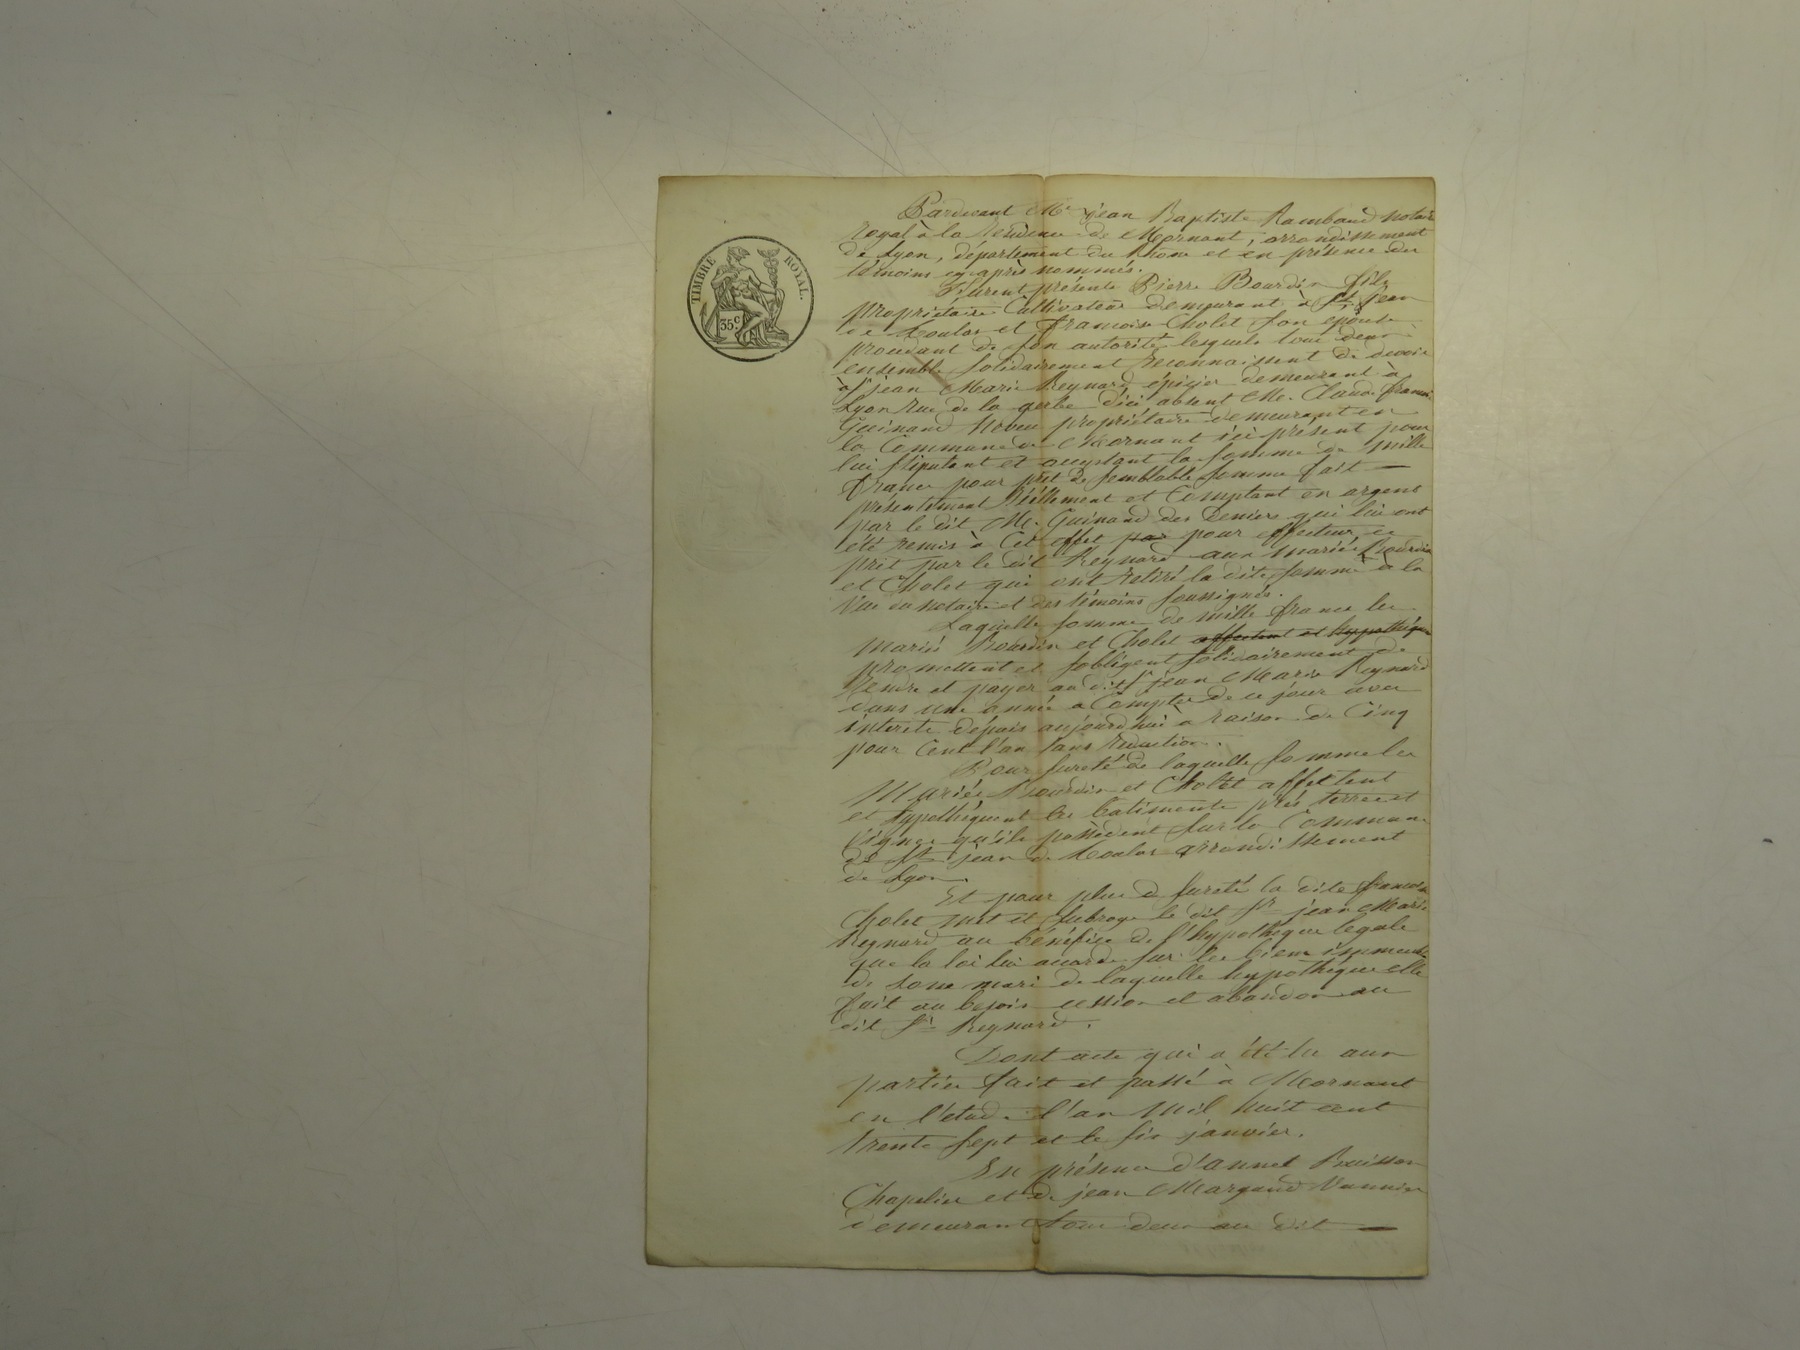 TIMBRE ROYAL.
35c
Pardevant Me jean Baptiste Rambaud notaire
Royal à la Residence de Mornant, arrondissement
de Lyon, département du Rhone et en présence des
témoins cy après nommés.
Furent présents Pierre Bourdin fils
propriétaire Cultivateur demeurant à St jean
de Toulas et françoise Cholet son epouse
procedant de son autorité lesquels tous deux
ensemble solidairement reconnaissent de devoir
à Sr jean Marie Reynard épicier demeurant à
Lyon rue de la gerbe d'ici absent Mr. Claude françois
Guinand Neveu propriétaire demeurant en
la Commune de Mornant ici présent pour
lui stipulant et acceptant la somme de mille
francs pour prêt de semblable somme fait
présentement Réellement et Comptant en argent
par le dit Mr. Guinand des deniers qui lui ont
été remis à Cet effet par pour effectuer ce
prêt par le dit Reynard aux mariés Bourdin
et Cholet qui ont retiré la dite somme à la
Vue du notaire et des témoins soussignés.
Laquelle somme de mille francs les
mariés Bourdin et Cholet affectent et hypothéque
promettent et sobligent solidairement de
Rendre et payer au dit Sr jean Marie Reynard
dans une année à Compter de ce jour avec
interets dépuis aujourdhui à raison de Cinq
pour Cent l'an sans Reduction.
Pour sureté de laquelle somme les
Mariés Bourdin et Cholet affectent
et hypothéquent les batiments prés terres et
Vignes qu'ils possèdent sur la Commune
de St jean de Toulas arrondissement
de Lyon.
Et pour plus de sureté la dite françoise
Cholet met et subroge le dit Sr jean Marie
Reynard au bénéfice de l'hypothèque légale
que la loi lui accorde sur les biens immeubles
de sone mari de laquelle hypothèque elle
fait au besoin cession et abandon au
dit Sr Reynard.
Dont acte qui a été lu aux
parties fait et passé à Mornant
en l'etude l'an Mil huit cent
trente sept et le six janvier.
En présence d'annet Buisson
Chapelier et de jean Margaud Vannier
demeurant tous deux au dit